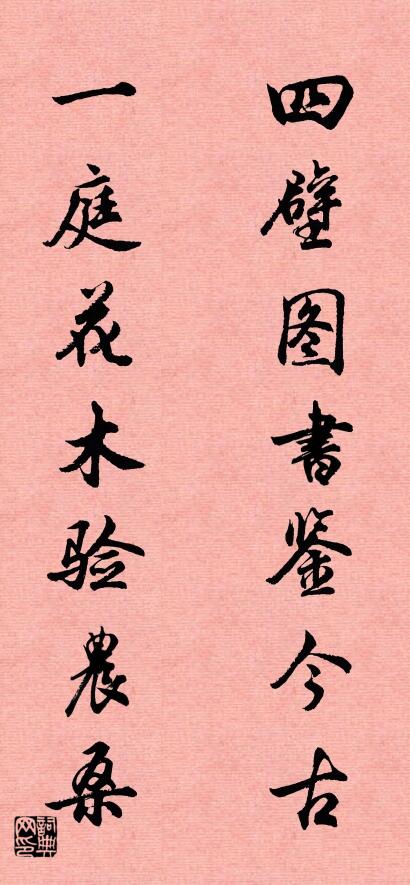 四壁图書鉴今古
一庭花木验農桑
詞典网印